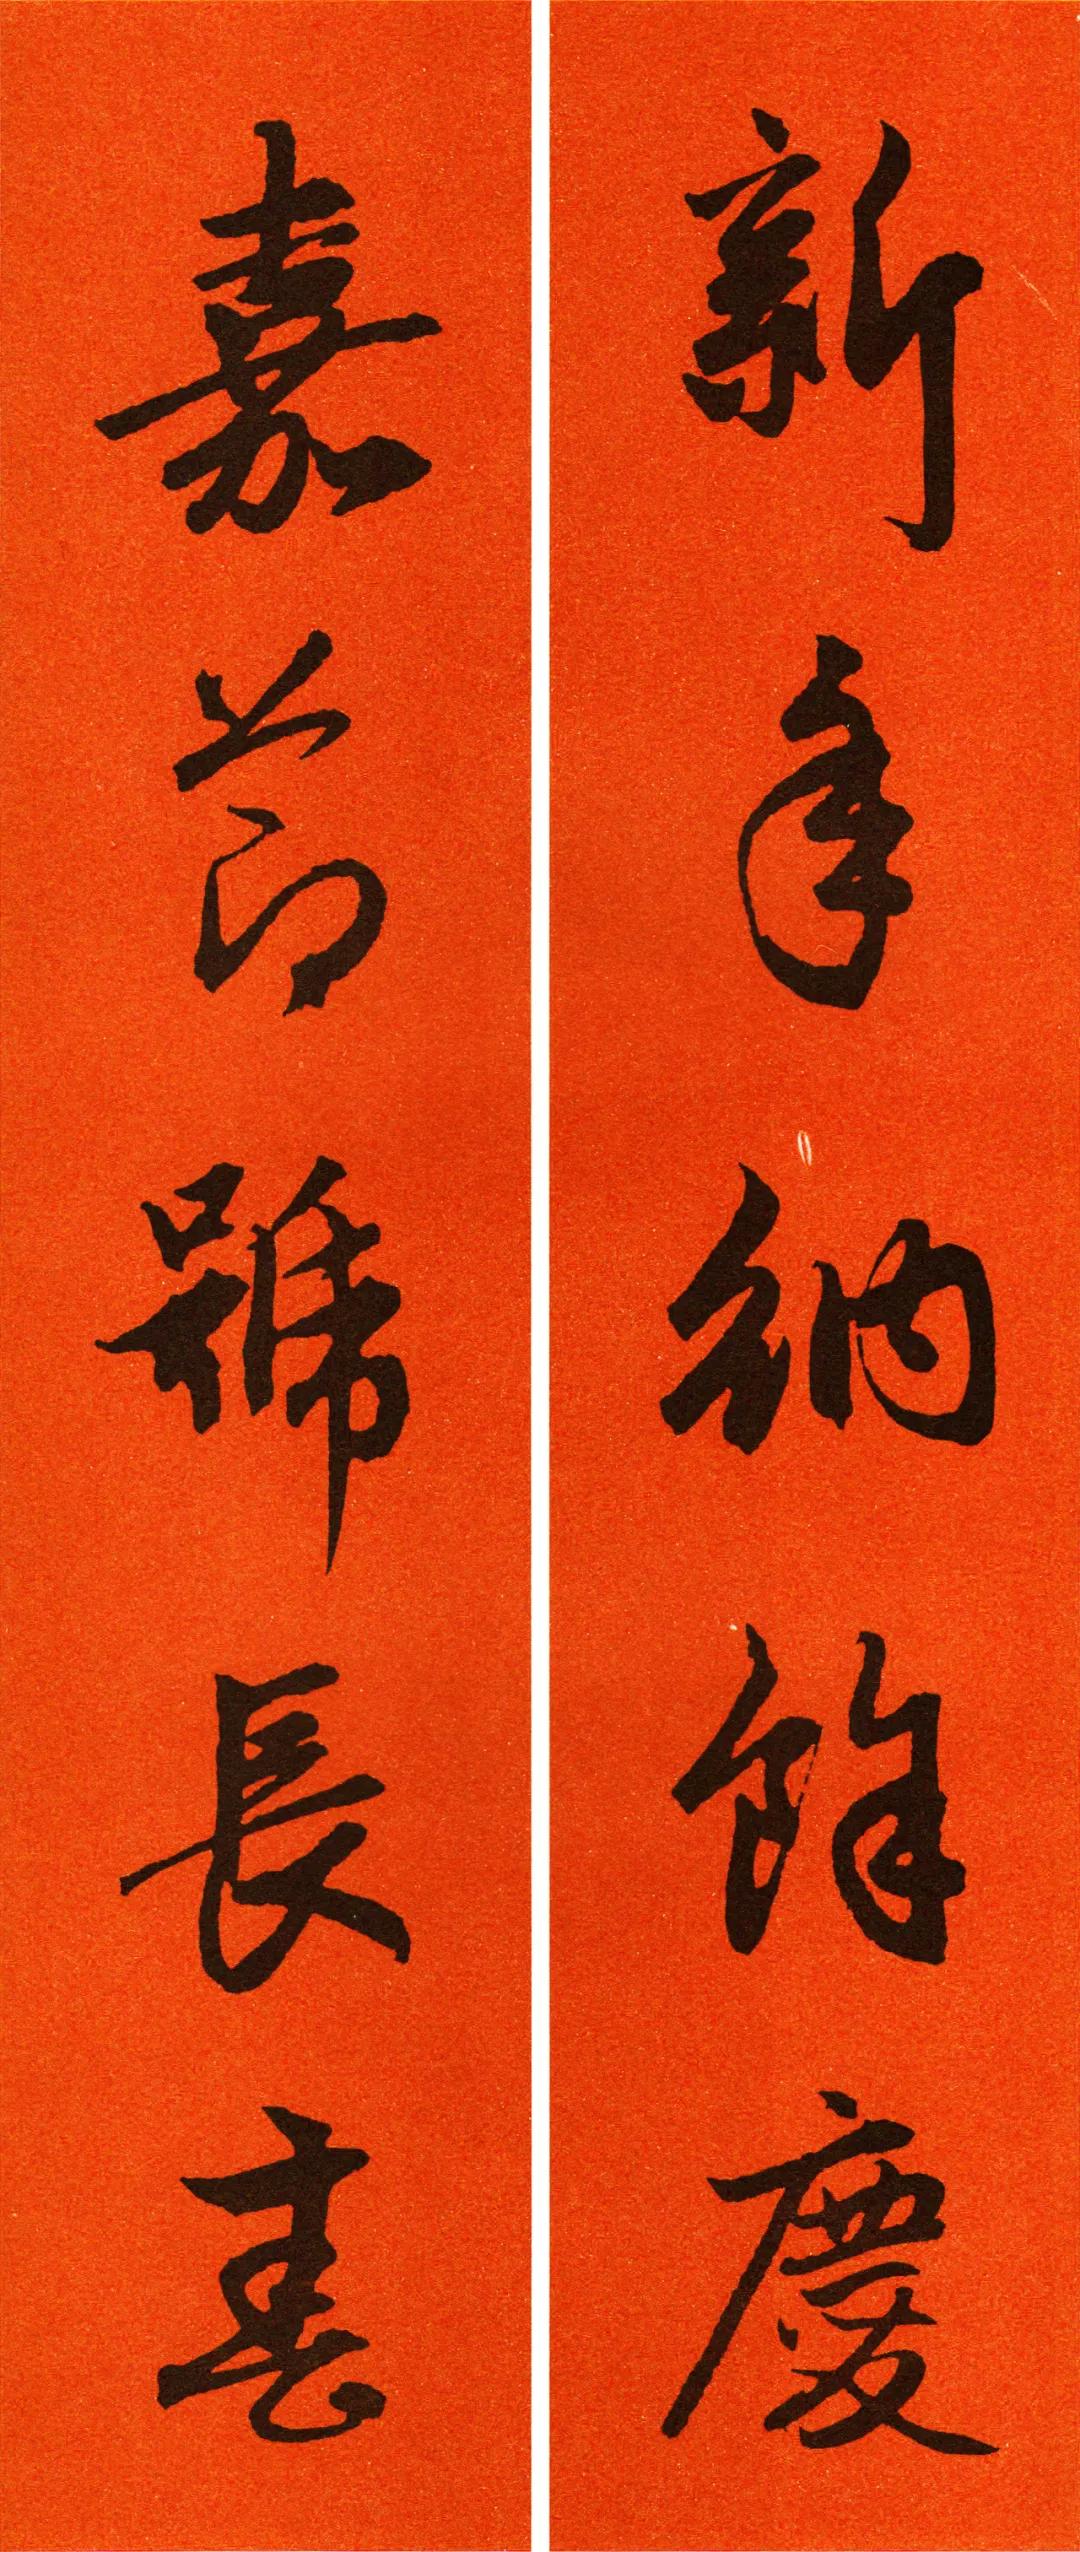 新年納餘慶
嘉節號長春